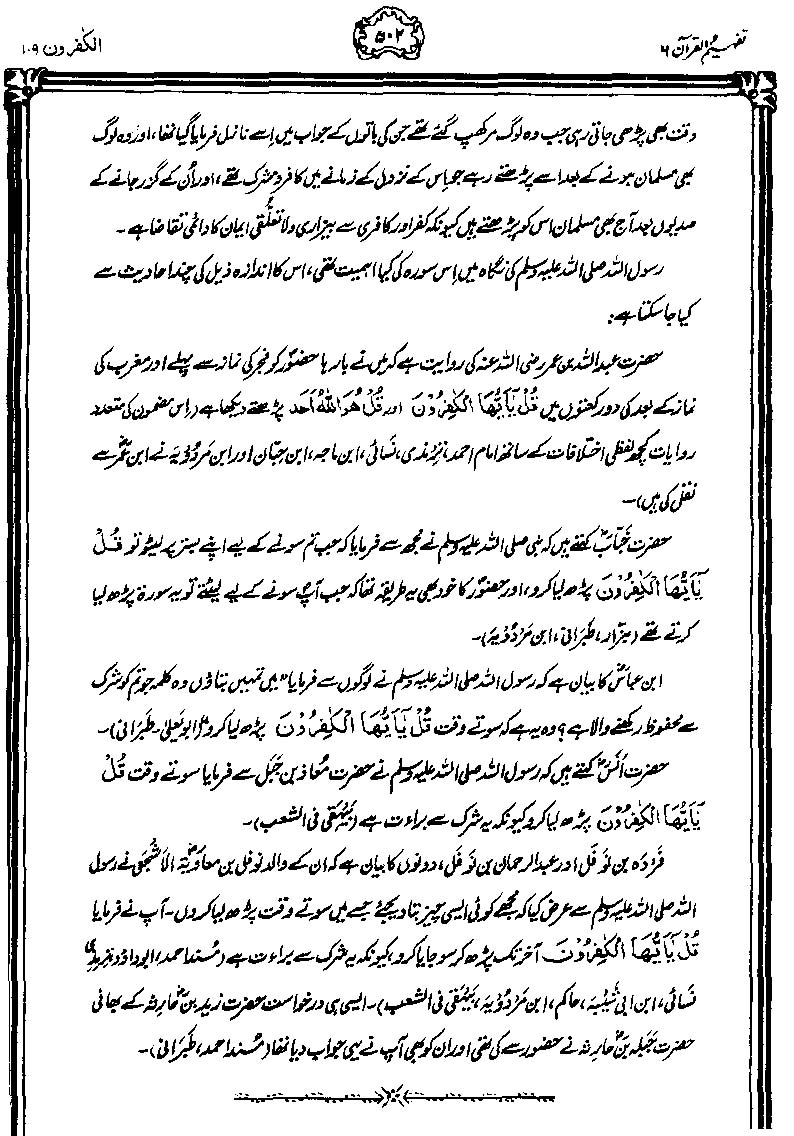 تفہیم القرآن ۶
۵۰۲
الکٰفرون ۱۰۹
وقت بھی پڑھی جاتی رہی جب وہ لوگ مر کھپ گئے تھے جن کی باتوں کے جواب میں اِسے نازل فرمایا گیا تھا، اور وہ لوگ
بھی مسلمان ہونے کے بعد اسے پڑھتے رہے جو اس کے نزول کے زمانے میں کافر و مشرک تھے، اور اُن کے گزر جانے کے
صدیوں بعد آج بھی مسلمان اس کو پڑھتے ہیں کیونکہ کفر اور کافری سے بیزاری و لا تعلّقی ایمان کا دائمی تقاضا ہے۔
رسول اللہ صلی اللہ علیہ وسلم کی نگاہ میں اِس سورہ کی کیا اہمیت تھی، اس کا اندازہ ذیل کی چند احادیث سے
کیا جا سکتا ہے:
حضرت عبداللہ بن عمر رضی اللہ عنہ کی روایت ہے کہ میں نے بارہا حضورؐ کو فجر کی نماز سے پہلے اور مغرب کی
نماز کے بعد کی دو رکعتوں میں قُلْ یٰٓاَیُّھَا الْکٰفِرُوْنَ اور قُلْ ھُوَ اللّٰہُ اَحَد پڑھتے دیکھا ہے (اِس مضمون کی متعدد
روایات کچھ لفظی اختلافات کے ساتھ امام احمد، تِرْمِذی، نَسائی، ابن ماجہ، ابن حِبّان اور ابن مَرْدُوْیَہ نے ابن عمرؓ سے
نقل کی ہیں)۔
حضرت خَبّابؓ کہتے ہیں کہ نبی صلی اللہ علیہ وسلم نے مجھ سے فرمایا کہ جب تم سونے کے لیے اپنے بستر پر لیٹو تو قُلْ
یٰٓاَیُّھَا الْکٰفِرُوْنَ پڑھ لیا کرو، اور حضورؐ کا خود بھی یہ طریقہ تھا کہ جب آپؐ سونے کے لیے لیٹتے تو یہ سورۃ پڑھ لیا
کرتے تھے (بزّار، طَبَرانی، ابن مَرْدُوْیَہ)۔
ابن عباسؓ کا بیان ہے کہ رسول اللہ صلی اللہ علیہ وسلم نے لوگوں سے فرمایا "میں تمہیں بتاؤں وہ کلمہ جو تم کو شرک
سے محفوظ رکھنے والا ہے؟ وہ یہ ہے کہ سوتے وقت قُلْ یٰٓاَیُّھَا الْکٰفِرُوْنَ پڑھ لیا کرو" (ابو یَعلیٰ۔ طَبَرانی)۔
حضرت اَنَسؓ کہتے ہیں کہ رسول اللہ صلی اللہ علیہ وسلم نے حضرت مُعاذ بن جَبَل سے فرمایا سوتے وقت قُلْ
یٰٓاَیُّھَا الْکٰفِرُوْنَ پڑھ لیا کرو کیونکہ یہ شرک سے براءت ہے (بَیْہَقی فی الشعب)۔
فَرْوَہ بن نَوفَل اور عبدالرحمان بن نَوفَل، دونوں کا بیان ہے کہ ان کے والد نوفل بن معاویۃ الاَشْجَعیؓ نے رسول
اللہ صلی اللہ علیہ وسلم سے عرض کیا کہ مجھے کوئی ایسی چیز بتا دیجئے جسے میں سوتے وقت پڑھ لیا کروں۔ آپ نے فرمایا
قُلْ یٰٓاَیُّھَا الْکٰفِرُوْنَ آخر تک پڑھ کر سو جایا کرو، کیونکہ یہ شرک سے براءت ہے (مُسند احمد، ابو داؤد، ترمذی،
نَسائی، ابن ابی شَیْبَہ، حاکم، ابن مَرْدُوْیَہ، بَیْہَقی فی الشعب)۔ ایسی ہی درخواست حضرت زید بن حارِثہ کے بھائی
حضرت جَبَلہ بن حارِثہ نے حضور سے کی تھی اور ان کو بھی آپ نے یہی جواب دیا تھا (مُسند احمد، طَبَرانی)۔